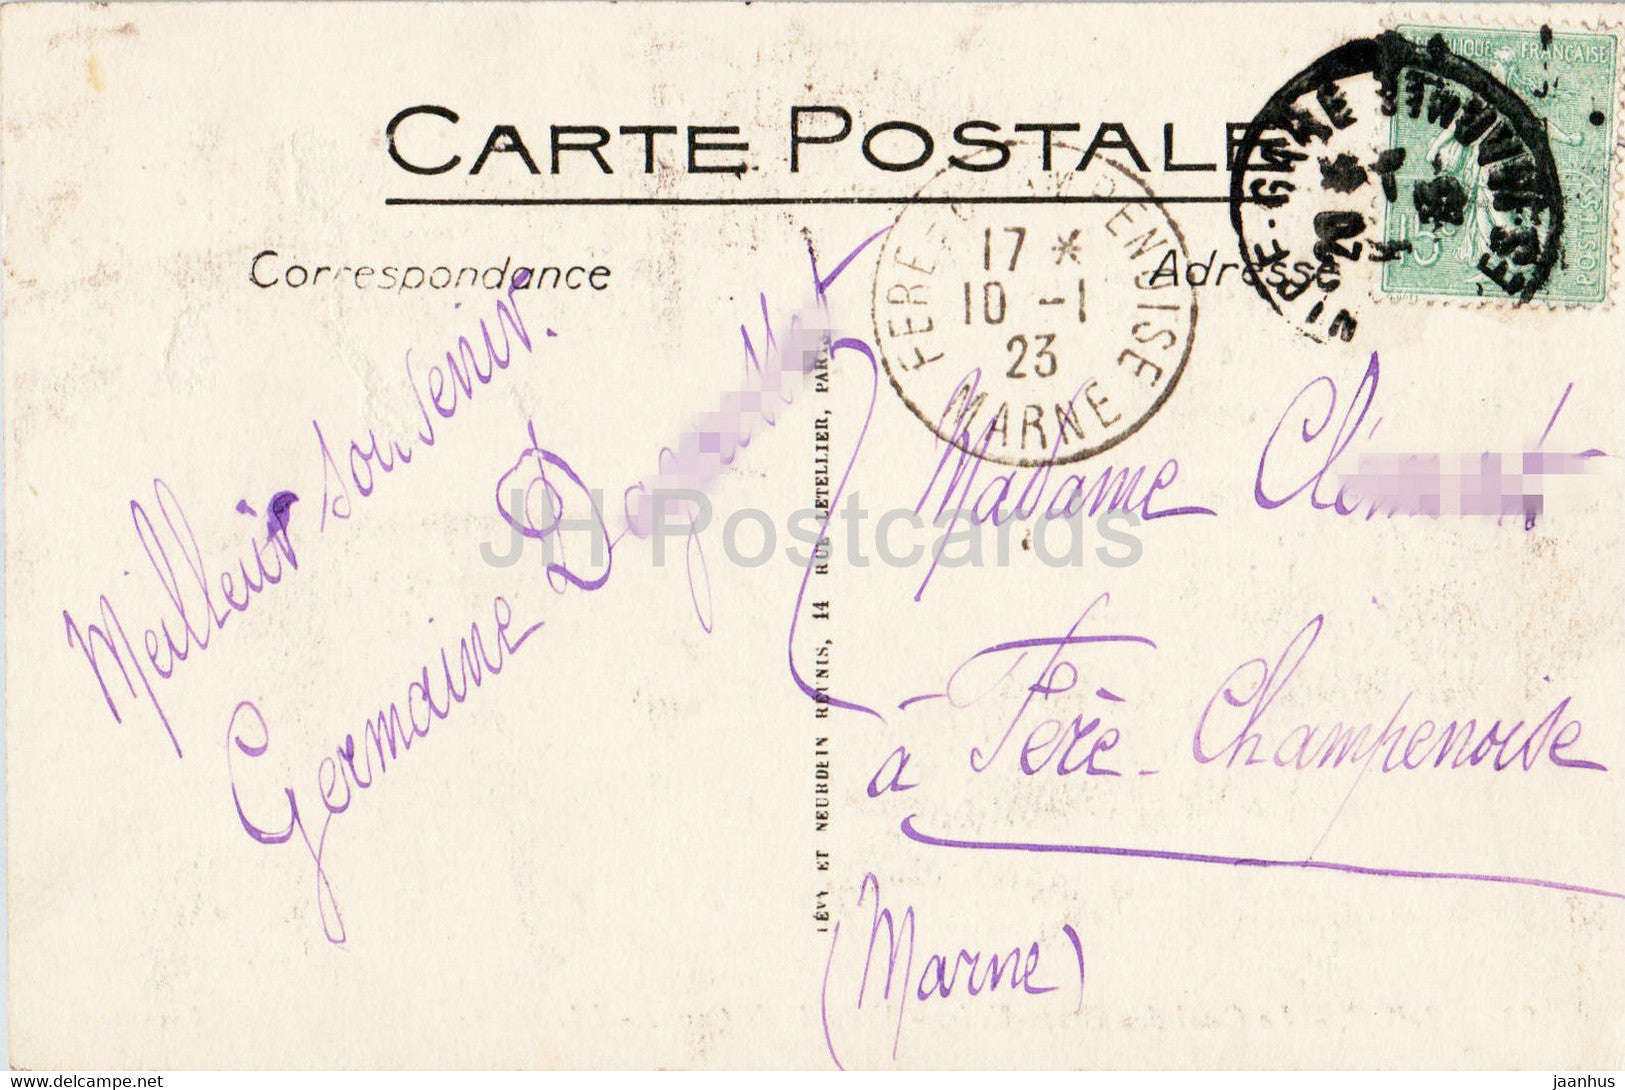 CARTE POSTALE
Correspondance
Adresse
RÉPUBLIQUE FRANÇAISE
POSTES
FERE-CHAMPENOISE
17 *
10 -1
23
MARNE
GARE
20 *
Meilleur souvenir.
Germaine
LÉVY ET NEURDEIN RÉUNIS, 44 RUE LETELLIER, PARIS
Madame
à Fère-Champenoise
(Marne)
JH Postcards
delcampe.net
jaanhus